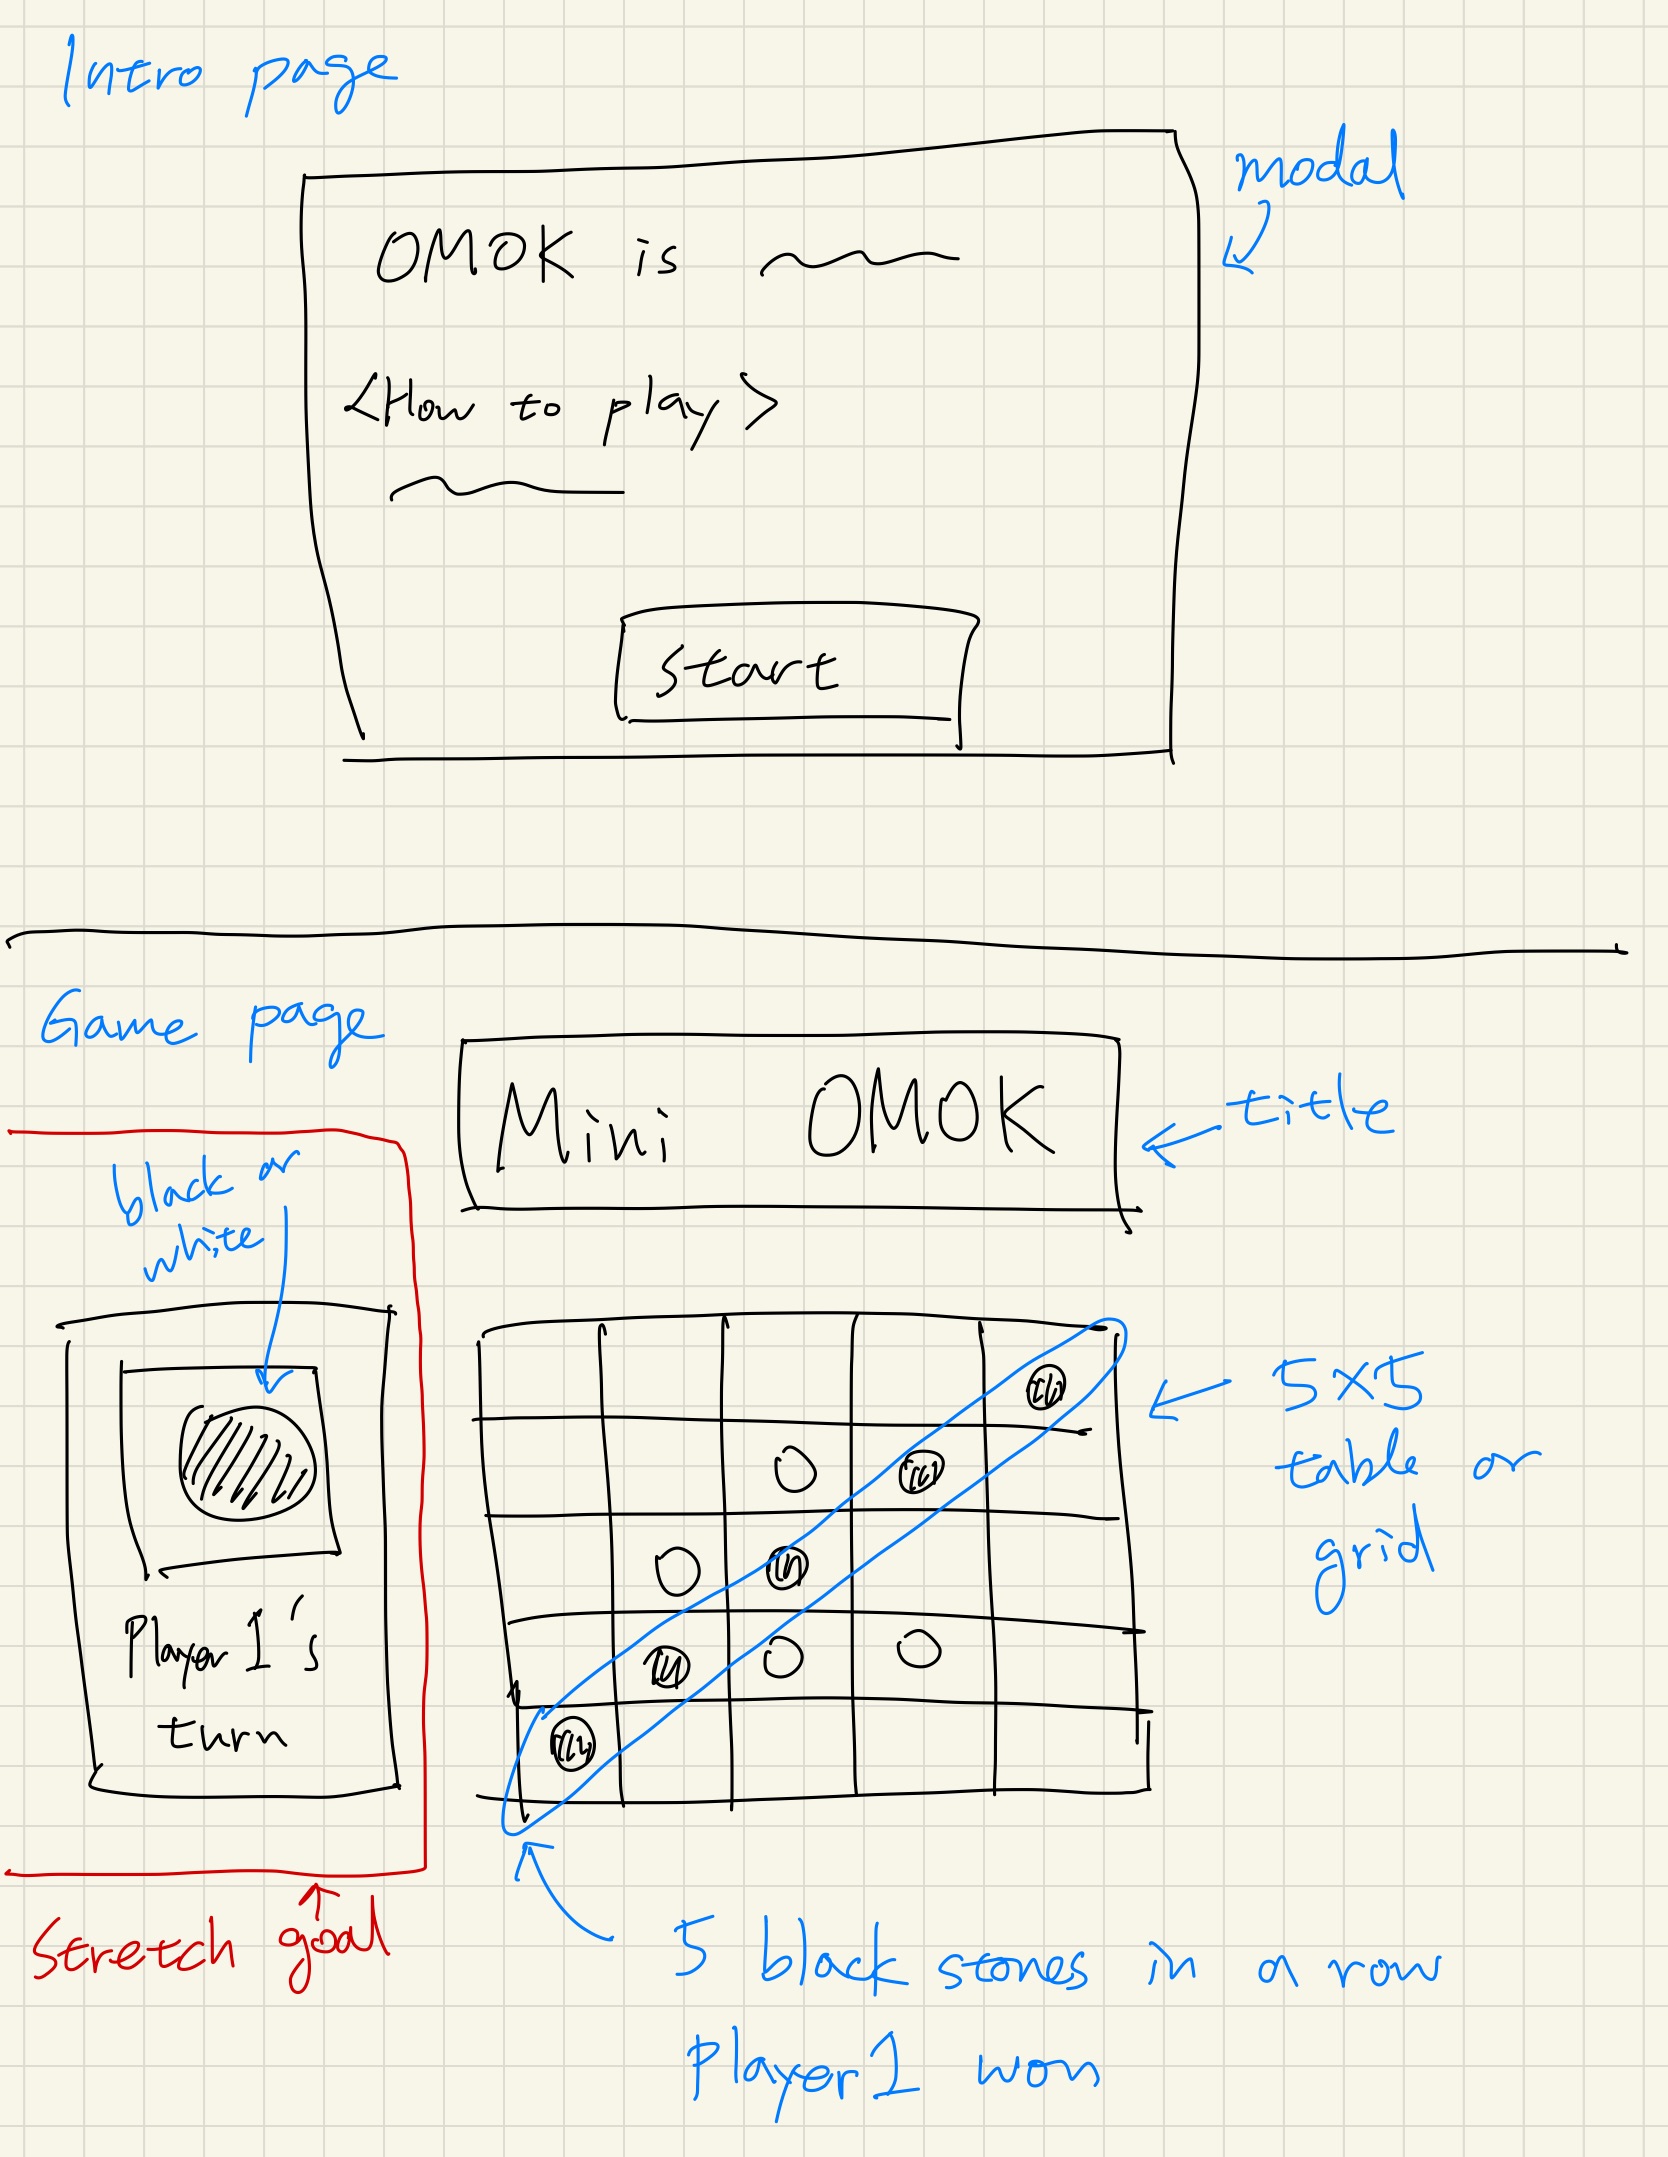 Intro page
modal
OMOK is
<How to play>
Start
Game page
Mini OMOK
title
black or
white
Player 1's
turn
5×5
table or
grid
Stretch goal
5 black stones in a row
Player 1 won